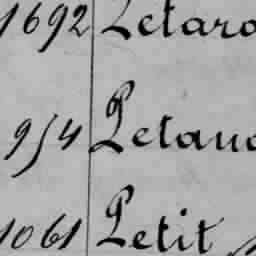 1692 Petard
954 Petaud
1061 Petit